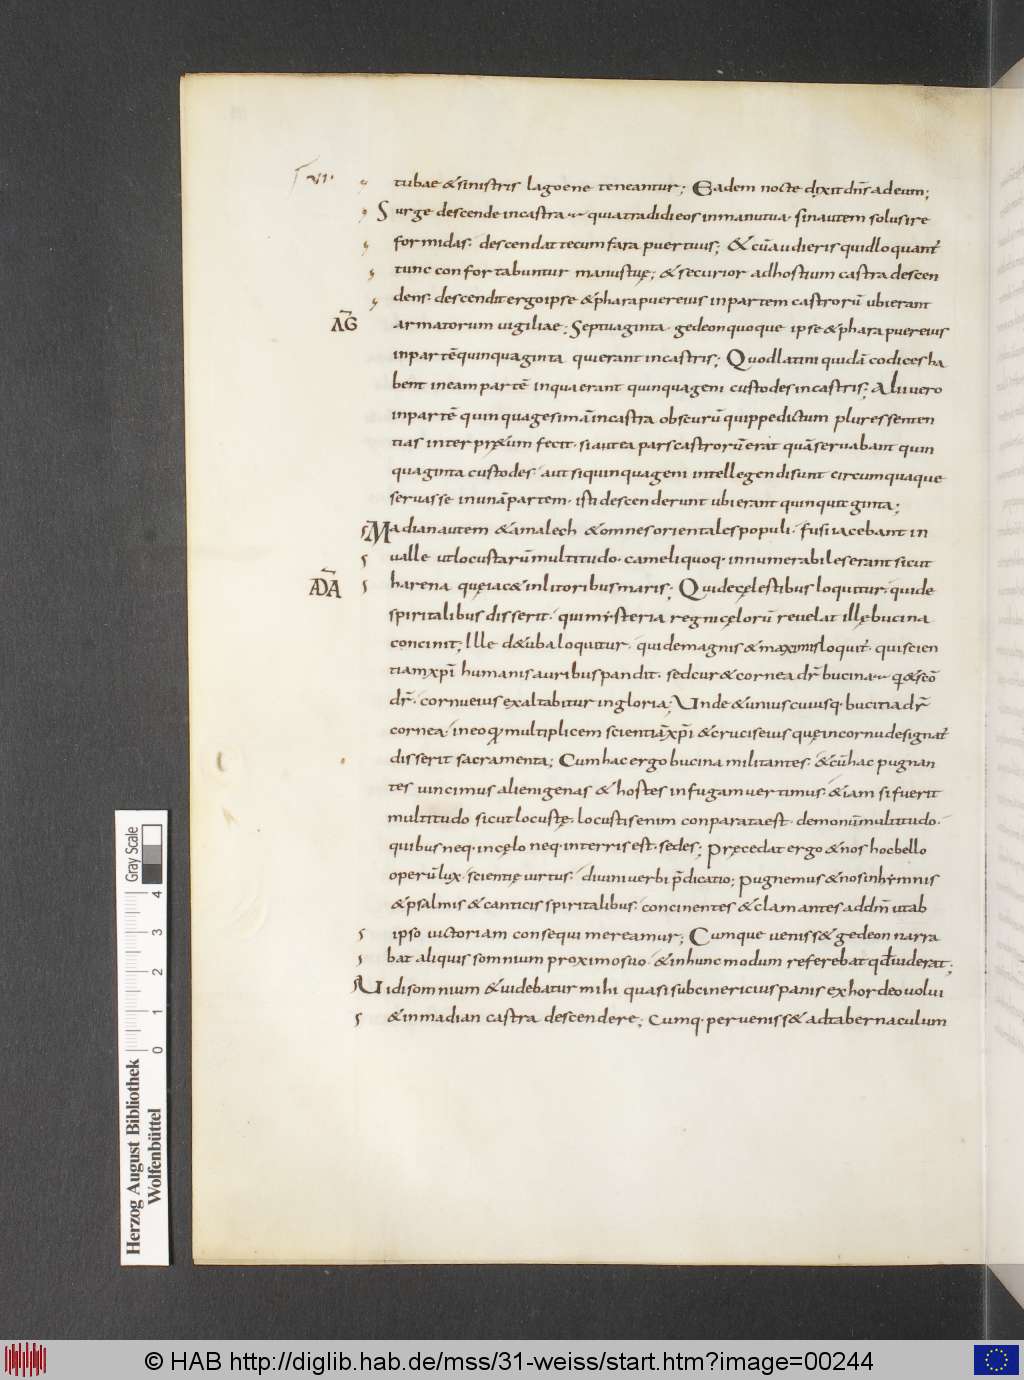 tubae & sinistris lagoene teneantur; Eadem nocte dixit dn̄s adeum;
Surge descende incastra · quiatradidieos inmanutua · sinautem solusire
formidas · descendattecum fara puertuus; & cū audieris quidloquant᷑
tunc confortabuntur manustuę; & securior adhostium castra descen
dens · descenditergoipse & phara puereius inpartem castrorū ubierant
AG̅
armatorum uigiliae; Septuaginta · gedeonquoque ipse & phara puereius
inpartē quinquaginta quierant incastris; Quodlatini quidā codicesha
bent ineam partē inquaerant quinquageni custodes incastris; Aliiuero
inpartē quinquagesimā incastra obscurū quippedictum pluressenten
tias interpr&um fecit · siautea parscastrorū erat quā seruabant quin
quaginta custodes · aut siquinquageni intellegendisunt circumquaque
seruasse inunā partem · isti descenderunt ubierant quinquit ginta;
Madianautem & amalech & omnes orientalespopuli · fusi iacebant in
ualle utlocustarū multitudo · cameli quoq· innumerabiles erant sicut
ADA̅
harena quęiac& inlitoribus maris; Quidecęlestibus loquitur · quide
spiritalibus disserit · quimysteria regnicęlorū reuelat illębucina
concinit; Ille d&uba loquitur · qui demagnis & maximis loquit᷑ · quiscien
tiamxp̄i humanis auribus pandit · sedcur & cornea dr̄ bucina · q &scō
dr̄ · cornueius exaltabitur ingloria; Unde & uniuscuiusq· bucitia dr̄
cornea · ineo q multiplicem scientiā xp̄i & cruciseius quęincornu designat᷑
disserit sacramenta; Cumhac ergo bucina militantes · & cū hac pugnan
tes uincimus alienigenas & hostes infugam uertimus · &iam si fuerit
multitudo sicut locustę · locustis enim conparata est · demonū multitudo ·
quibus neq· incęlo neq· interris est · sedes; Pręcedat ergo & nos hocbello
operū lux · scientię uirtus · diuini uerbi p̄dicatio; Pugnemus & nos inhymnis
& psalmis & canticis spiritalibus · concinentes & clamantes addm̄ utab
ipso uictoriam consequi mereamur; Cumque uenis& gedeon narra
bat aliquis somnium proximosuo · & inhunc modum referebat qd̄ uiderat;
Uidi somnium & uidebatur mihi quasi subcinericius panis exhordeo uolui
& inmadian castra descendere; Cumq· peruenis& adtabernaculum
Gray Scale
0 1 2 3 4
Herzog August Bibliothek
Wolfenbüttel
© HAB http://diglib.hab.de/mss/31-weiss/start.htm?image=00244